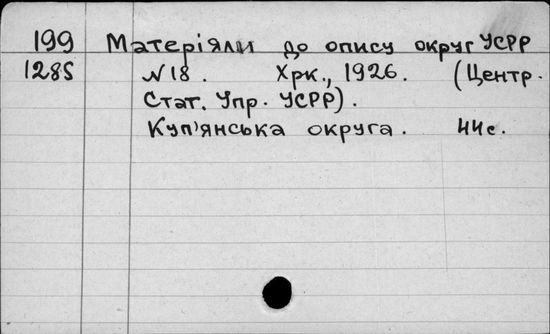 199 Матеріяли до опису округ УСРР
1285 N18. Хрк., 1926. (Центр.
Стат. Упр. УСРР).
Куп'янська округа. 44с.